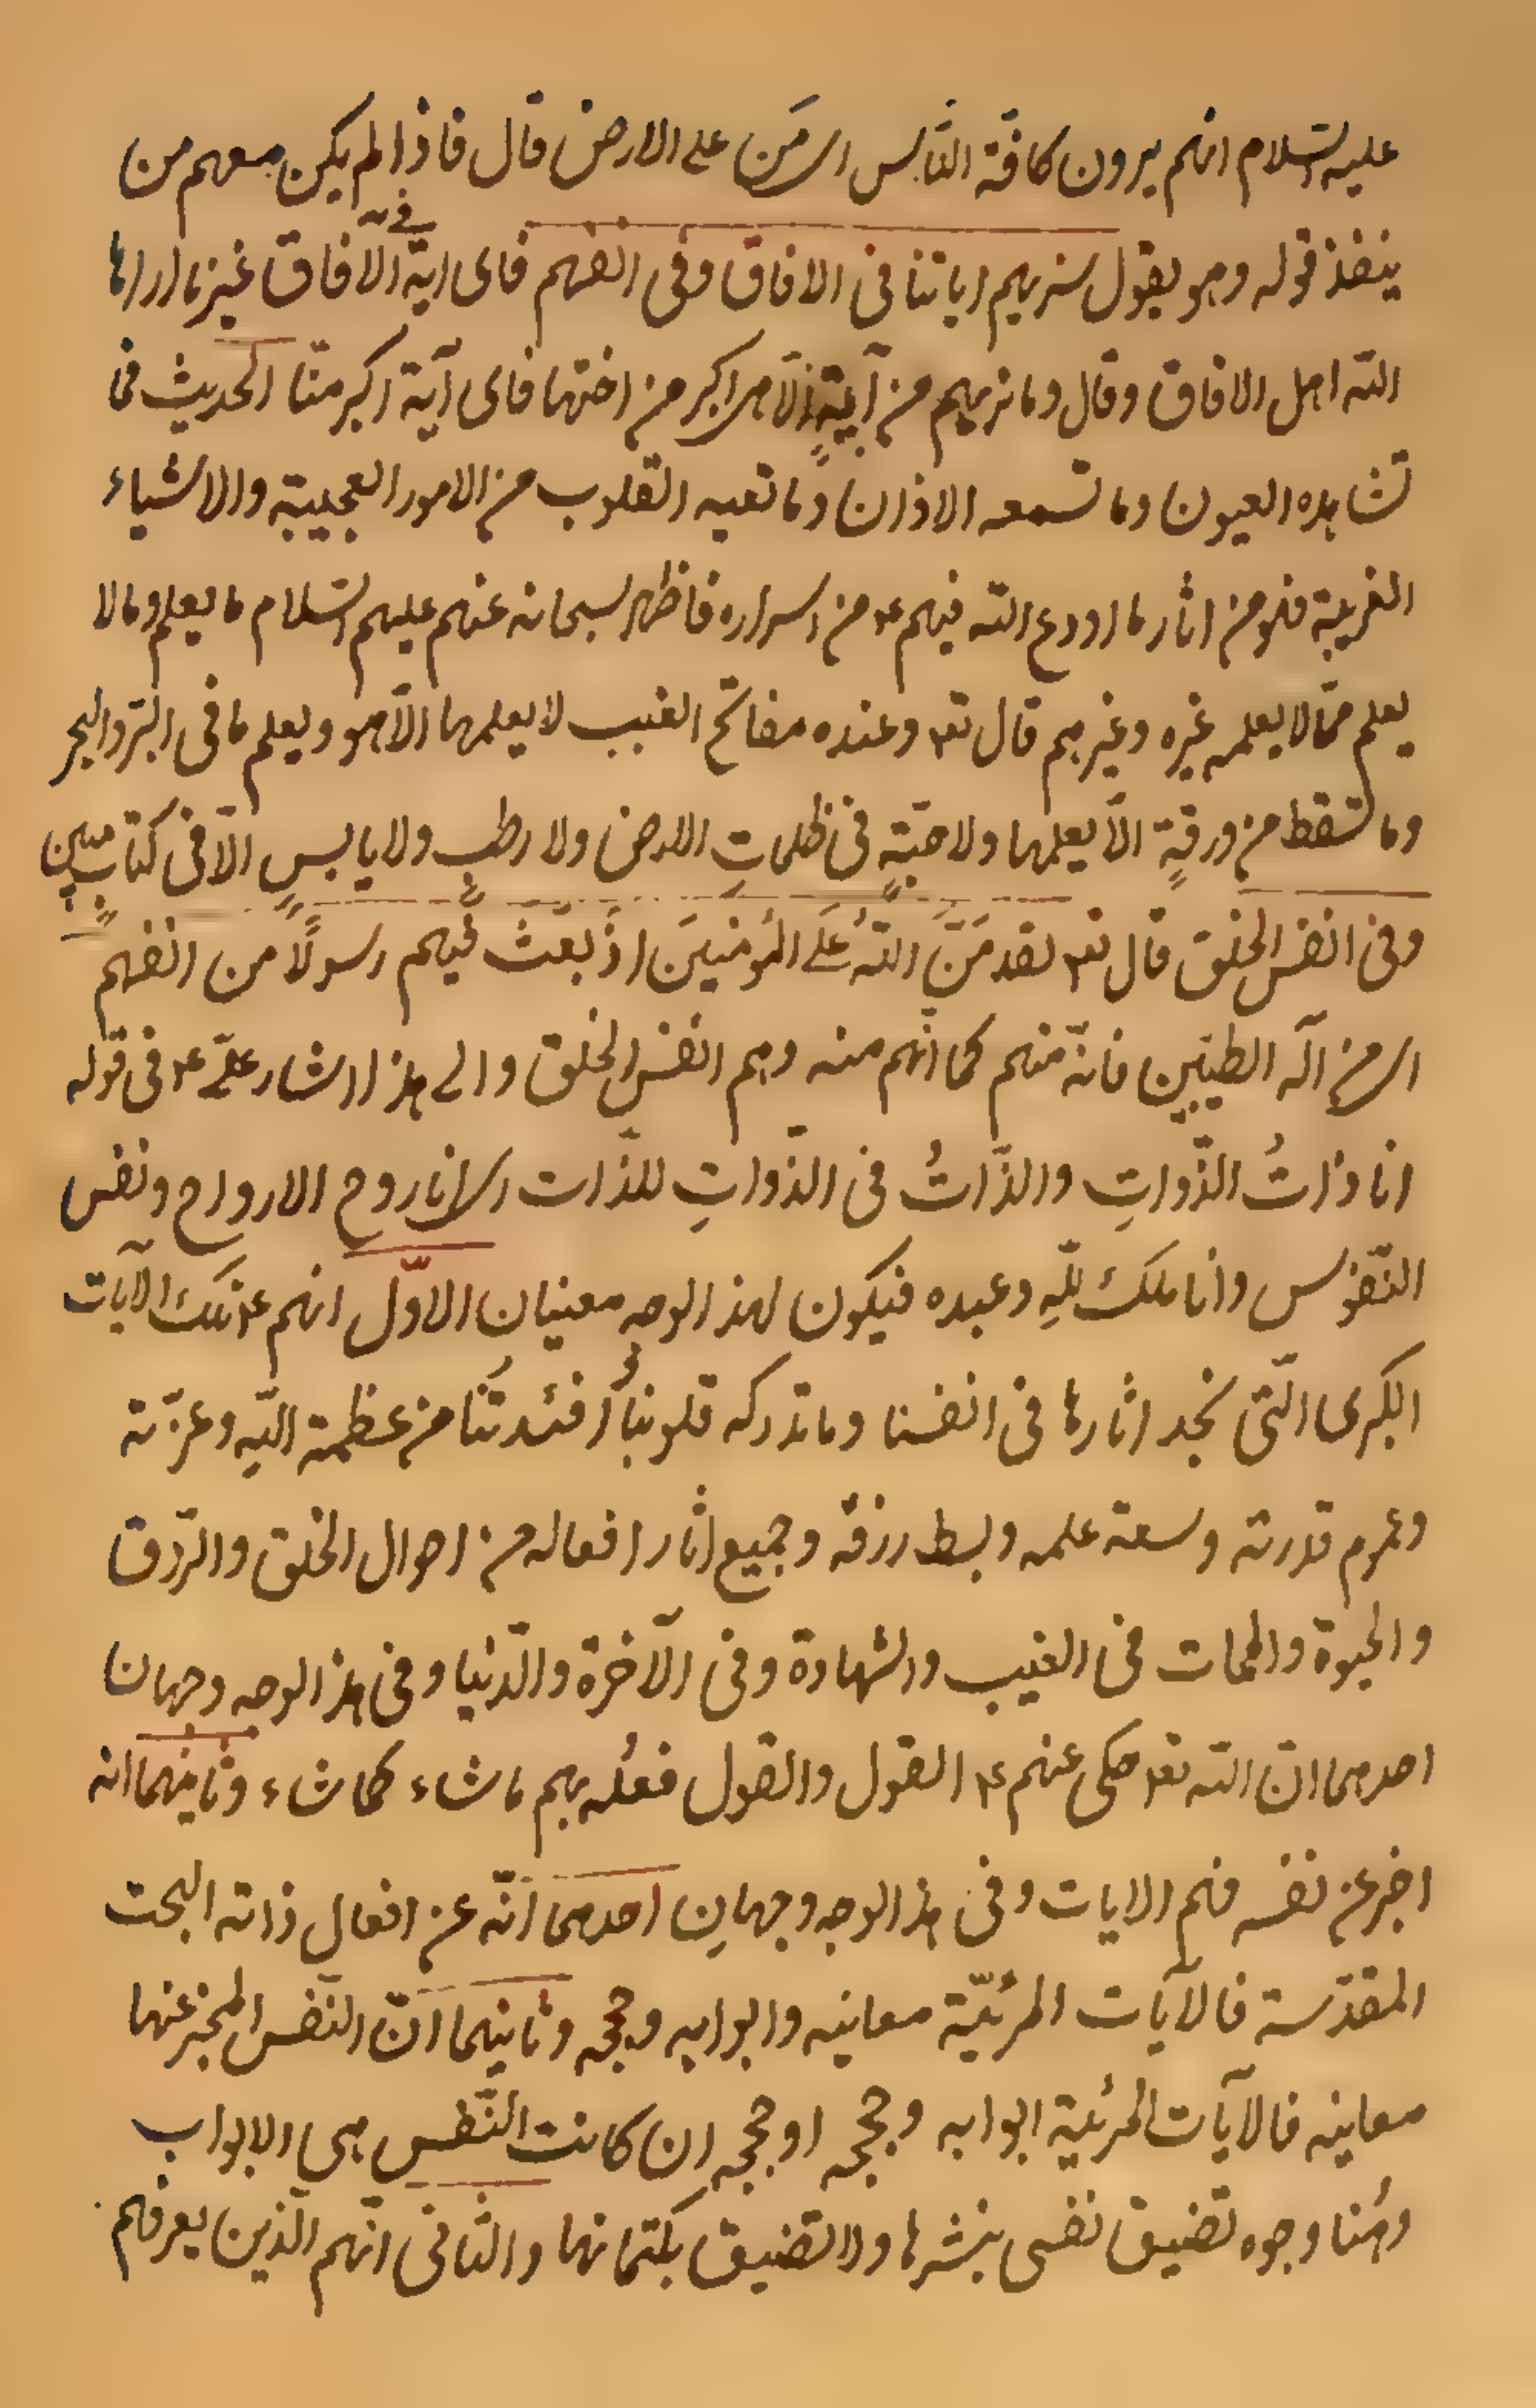 عليه السّلام انهم يرون كافة النّاس اى مَن على الارض قال فاذا لم يكن معهم من
ينفذ قوله وهو يقول سنريهم اياتنا فى الافاق وفى انفسهم فاى اية فى الآفاق غيرنا اراها
الله اهل الافاق وقال وما نريهم من آيةٍ الّا هى اكبر من اختها فاى آية اكبر منّا الحديث فما
تشاهده العيون وما تسمعه الاذان وما تعيه القلوب من الامور العجيبة والاشياء
الغريبة فهو من اثار ما اودع الله فيهم ع من اسراره فاظهر سبحانه عنهم عليهم السّلام ما يعلم وما لا
يعلم ممّا لا يعلمه غيره وغيرهم قال تع وعنده مفاتح الغيب لا يعلمها الّا هو ويعلم ما فى البَرّ والبحر
وما تسقط من ورقةٍ الّا يعلمها ولا حبّةٍ فى ظلماتِ الارض ولا رطبٍ ولا يابسٍ الّا فى كتابٍ مبين
وفى انفس الخلق قال تع لقد مَنَّ اللهُ عَلَى المُؤمنينَ اذ بَعَثَ فيهم رسولًا من انفسهم
اى من اله الطيّبين فانّه منهم كما انّهم منه وهم انفس الخلق والى هذا اشار علىّ ع فى قوله
انا ذاتُ الذّواتِ والذّاتُ فى الذّواتِ للذّات اى انا روح الارواح ونفس
النّفوس وانا ملكٌ للّهِ وعبده فيكون لهذا الوجه معنيان الاوّل انهم ع تلك الآيات
الكبرى الّتى نجد اثارها فى انفسنا وما تدركه قلوبنا وأفئدتُنا من عظمة اللّهِ وعزّته
وعموم قدرته وسعة علمه وبسط رزقه وجميع اثار افعاله من احوال الخلق والرّزق
والحيوة والممات فى الغيب والشهادة وفى الآخرة والدّنيا وفى هذا الوجه وجهان
احدهما انّ الله تع حكى عنهم ع القول والقول فعلُه بهم ما شاء كما شاء وثانيهما انه
اخبر عن نفسه فهم الايات وفى هذا الوجه وجهانِ احدهما انّه عن افعال ذاته البحت
المقدّسة فالآيات المرئيّة معانيه وابوابه وحججه وثانيهما انّ النّفس المخبر عنها
معانيه فالآيات المرئية ابوابه وحججه او حججه ان كانت النّفس هى الابواب
وهُنا وجوه تضيق نفسى بنشرها ولا تضيق بكتمانها والثّانى انّهم الّذين يعرفهم